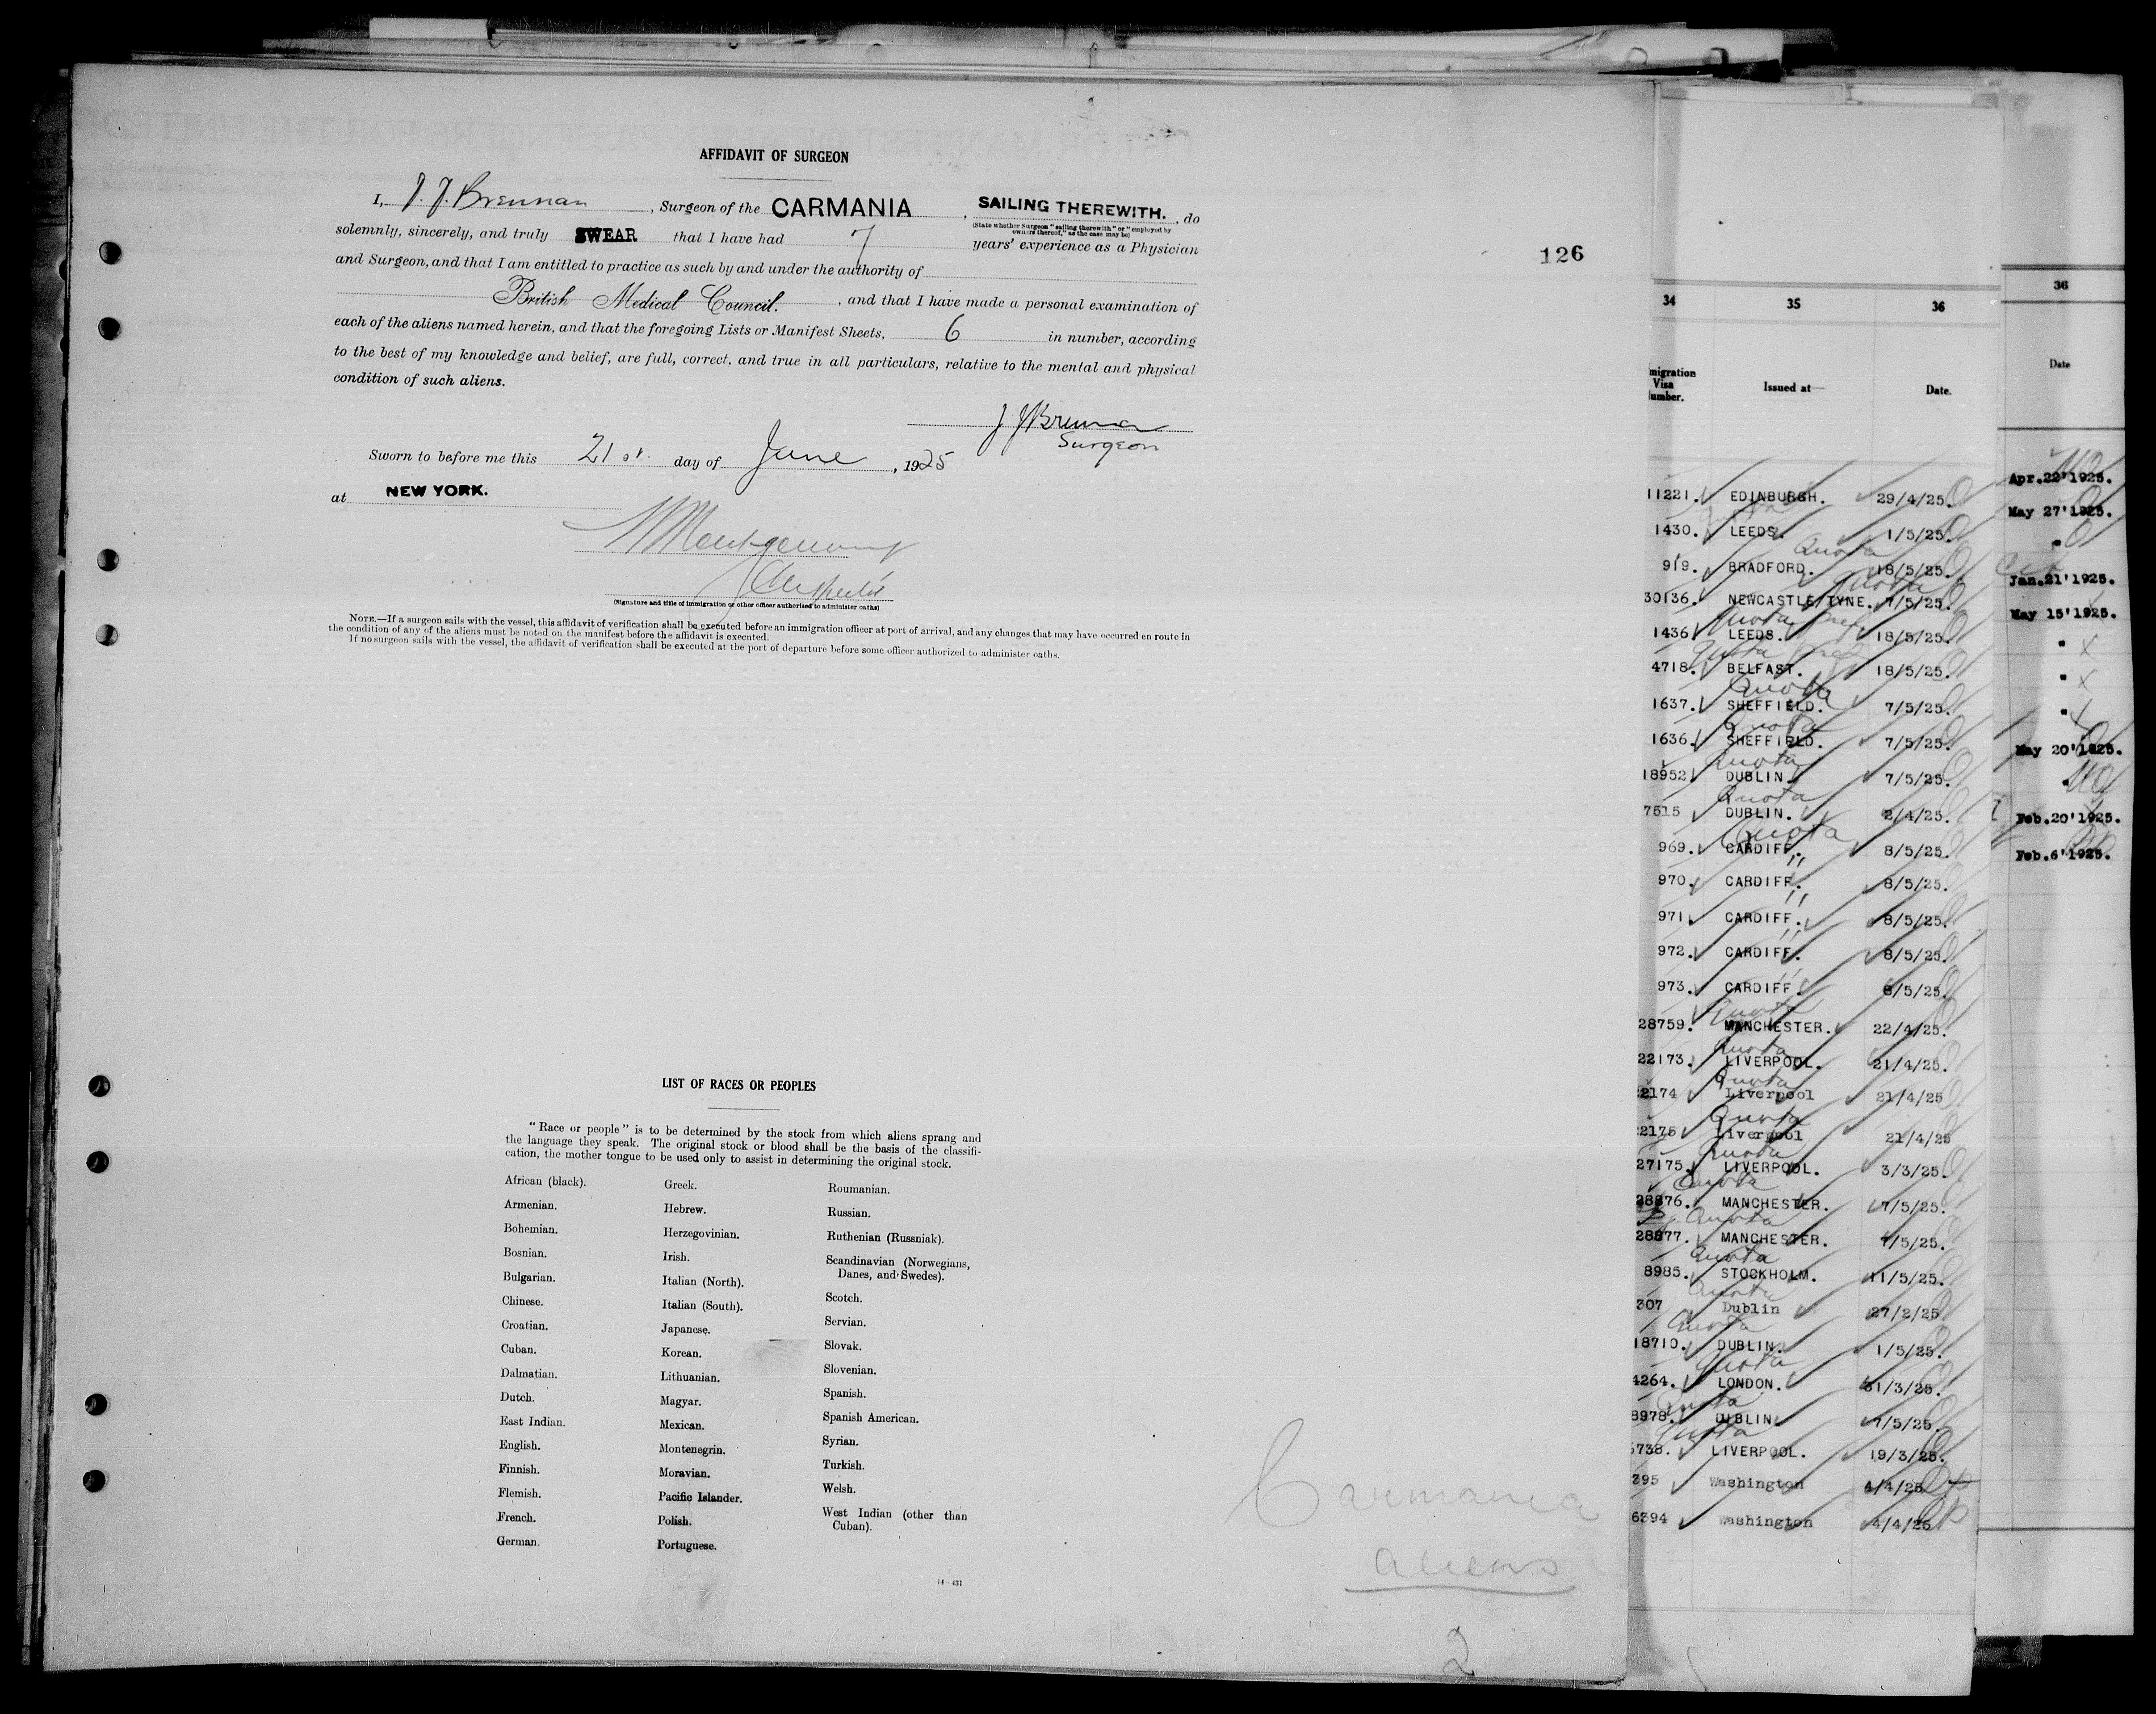 AFFIDAVIT OF SURGEON
I, J. J. Brennan, Surgeon of the CARMANIA, SAILING THEREWITH., do
(State whether Surgeon "sailing therewith" or "employed by
owners thereof," as the case may be)
solemnly, sincerely, and truly SWEAR that I have had 7 years' experience as a Physician
and Surgeon, and that I am entitled to practice as such by and under the authority of
British Medical Council. , and that I have made a personal examination of
each of the aliens named herein, and that the foregoing Lists or Manifest Sheets, 6 in number, according
to the best of my knowledge and belief, are full, correct, and true in all particulars, relative to the mental and physical
condition of such aliens.
J J Brennan
Surgeon
Sworn to before me this 21st. day of June, 1925
at NEW YORK.
Montgomery
(Signature and title of immigration or other officer authorized to administer oaths)
NOTE.—If a surgeon sails with the vessel, this affidavit of verification shall be executed before an immigration officer at port of arrival, and any changes that may have occurred en route in
the condition of any of the aliens must be noted on the manifest before the affidavit is executed.
If no surgeon sails with the vessel, the affidavit of verification shall be executed at the port of departure before some officer authorized to administer oaths.
126
LIST OF RACES OR PEOPLES
"Race or people" is to be determined by the stock from which aliens sprang and
the language they speak. The original stock or blood shall be the basis of the classifi-
cation, the mother tongue to be used only to assist in determining the original stock.
African (black).
Armenian.
Bohemian.
Bosnian.
Bulgarian.
Chinese.
Croatian.
Cuban.
Dalmatian.
Dutch.
East Indian.
English.
Finnish.
Flemish.
French.
German.
Greek.
Hebrew.
Herzegovinian.
Irish.
Italian (North).
Italian (South).
Japanese.
Korean.
Lithuanian.
Magyar.
Mexican.
Montenegrin.
Moravian.
Pacific Islander.
Polish.
Portuguese.
Roumanian.
Russian.
Ruthenian (Russniak).
Scandinavian (Norwegians,
Danes, and Swedes).
Scotch.
Servian.
Slovak.
Slovenian.
Spanish.
Spanish American.
Syrian.
Turkish.
Welsh.
West Indian (other than
Cuban).
14—431
Carmania
aliens
2
34 35 36
migration
Visa
umber. Issued at— Date.
11221. EDINBURGH. 29/4/25
1430. LEEDS. 1/5/25.
Quota
919. BRADFORD. 18/5/25.
Quota
30136. NEWCASTLE/TYNE. 7/5/25.
Quota Pref
1436 LEEDS. 18/5/25.
Quota Pref
4718. BELFAST. 18/5/25.
Quota
1637. SHEFFIELD. 7/5/25.
Quota
1636. SHEFFIELD. 7/5/25.
Quota
18952 DUBLIN 7/5/25.
Quota
7515 DUBLIN. 2/4/25.
Quota
969. CARDIFF. 8/5/25.
"
970. CARDIFF. 8/5/25.
"
971. CARDIFF. 8/5/25.
"
972. CARDIFF. 8/5/25.
"
973. CARDIFF 8/5/25.
Quota
28759. MANCHESTER. 22/4/25.
Quota
22173. LIVERPOOL. 21/4/25.
Quota
22174 Liverpool 21/4/25
Quota
22175 Liverpool 21/4/25
Quota
27175. LIVERPOOL. 3/3/25.
Quota
28876. MANCHESTER. 7/5/25.
Quota
28877. MANCHESTER. 7/5/25.
Quota
8985. STOCKHOLM. 11/5/25.
Quota
307 Dublin 27/2/25
Quota
18710. DUBLIN. 1/5/25.
Quota
4264. LONDON. 31/3/25.
Quota
8978. DUBLIN 7/5/25.
Quota
738. LIVERPOOL. 19/3/25.
395 Washington 4/4/25
6394 Washington 4/4/25
36
Date
Apr.22'1925.
May 27'1925.
"
Jan.21'1925.
May 15'1925.
" X
" X
"
May 20'1925.
"
Feb.20'1925.
Feb.6'1925.